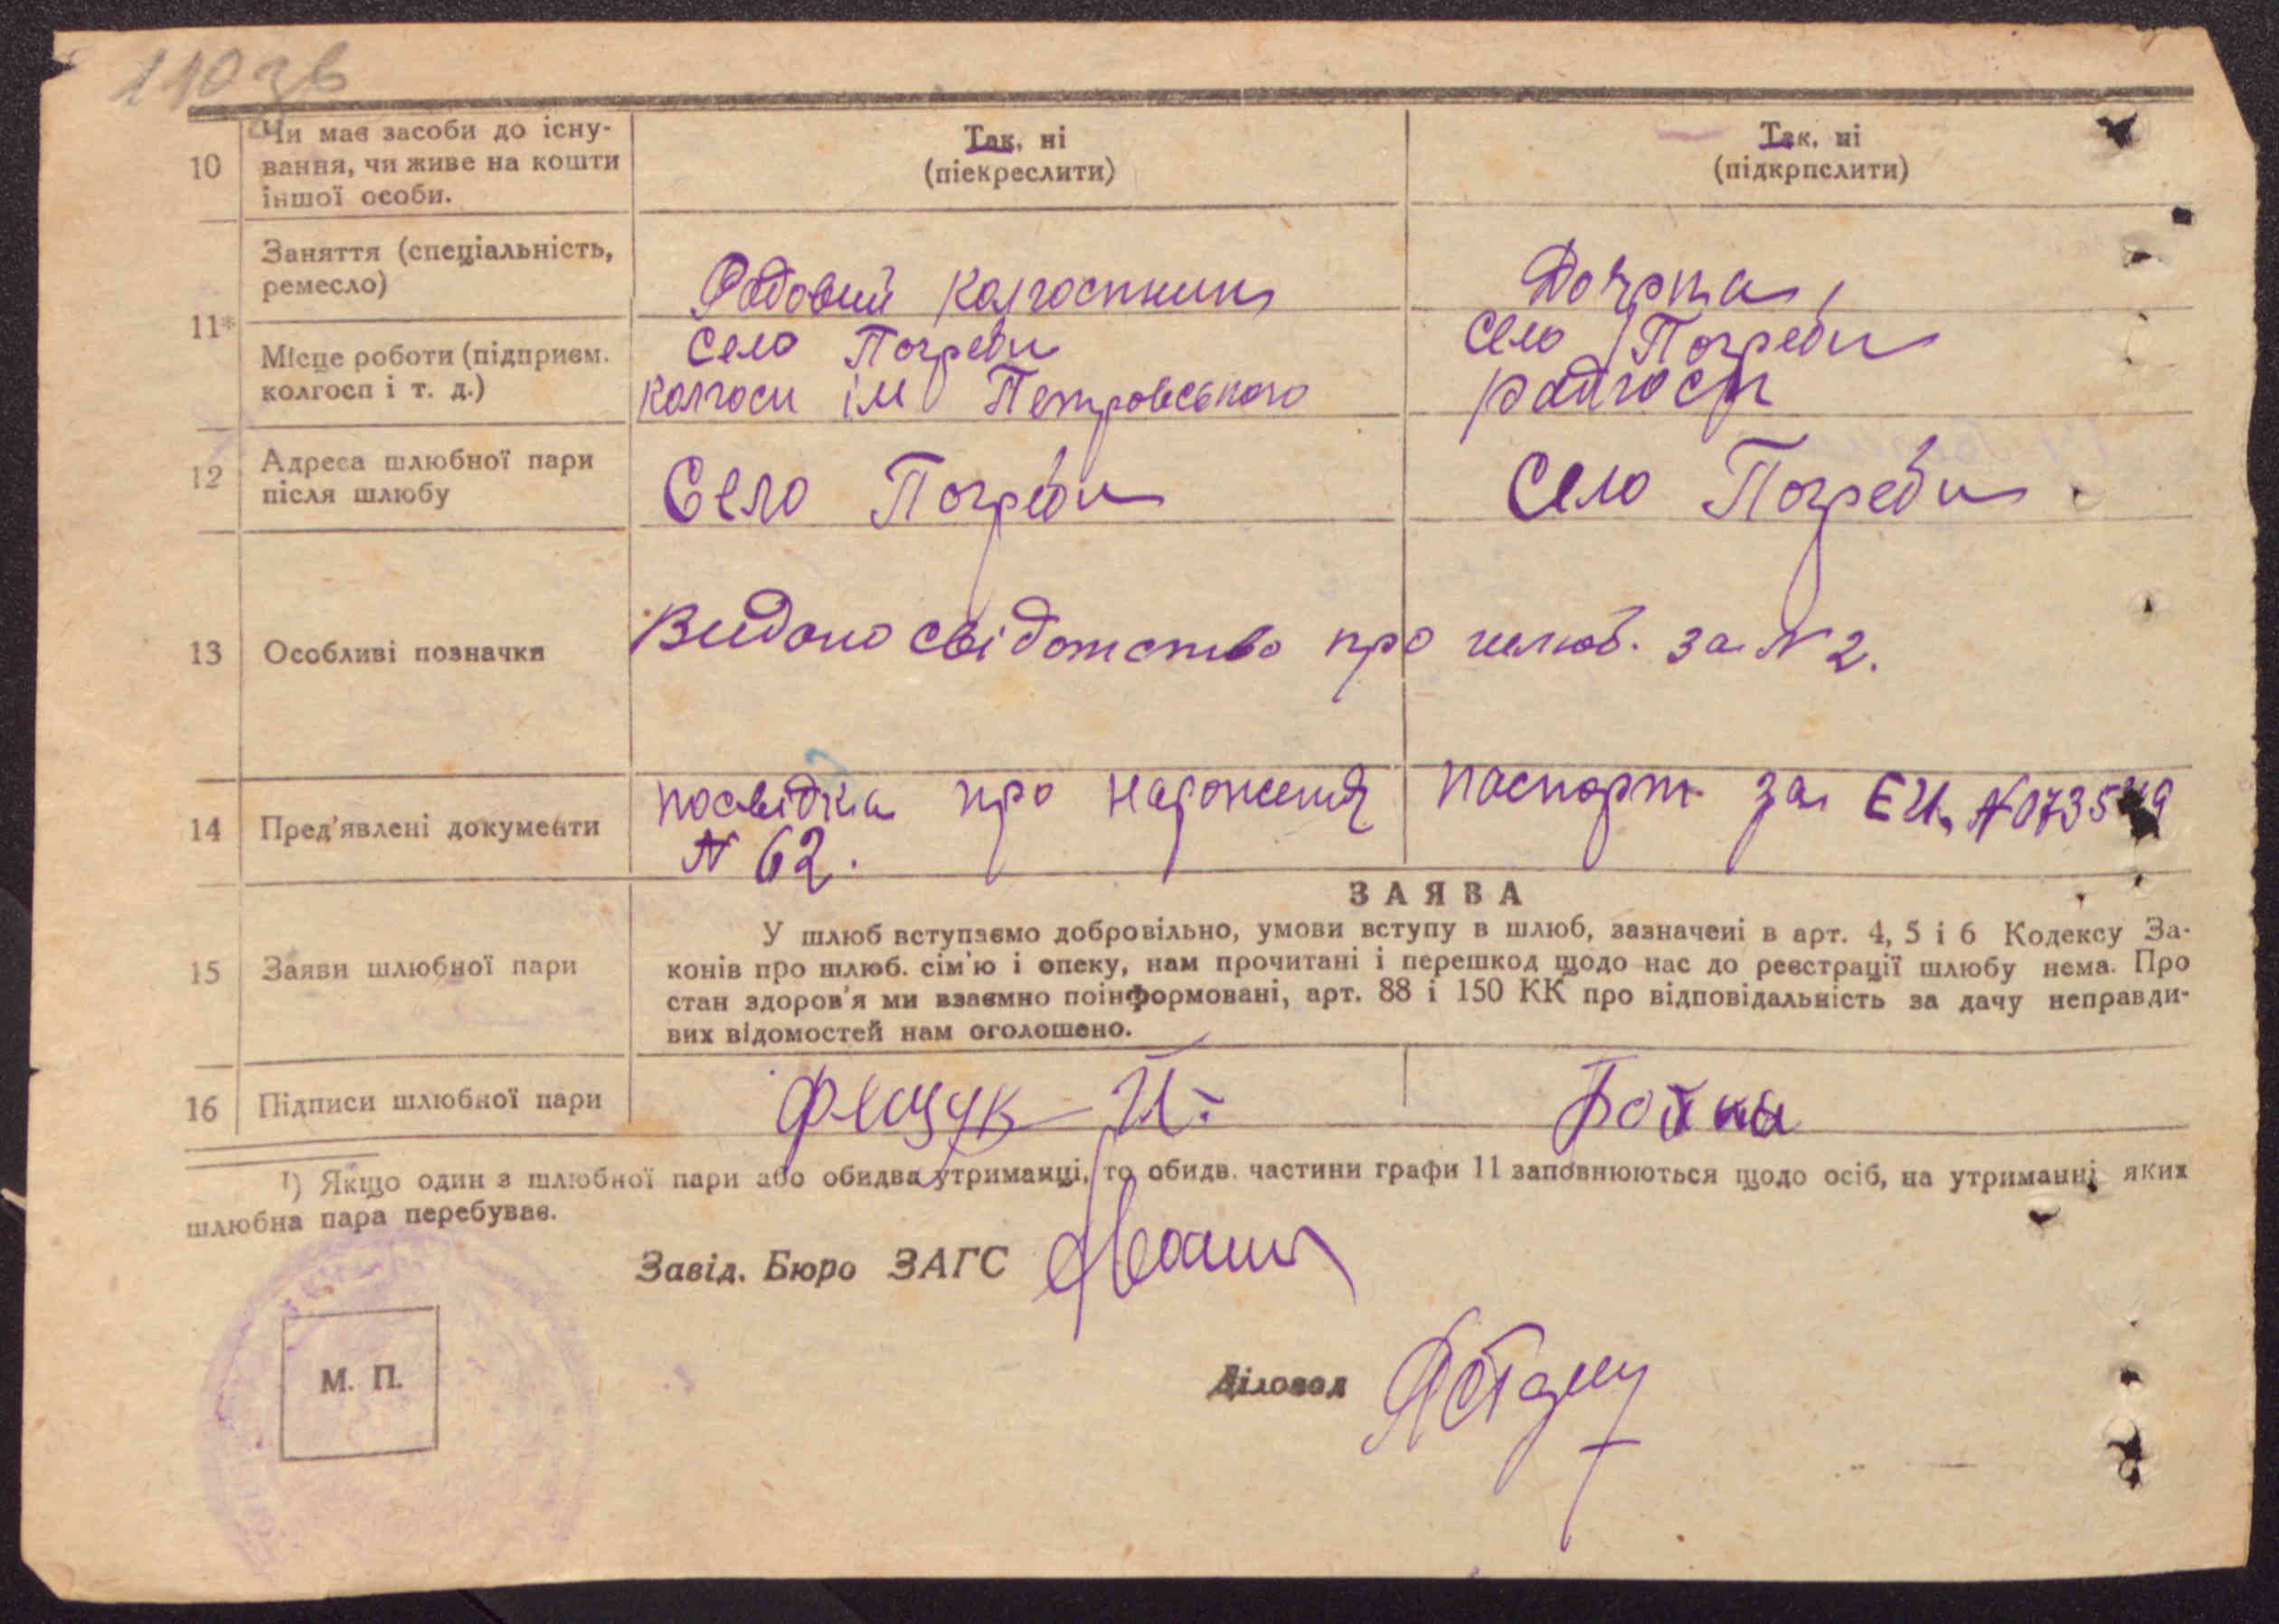 110 зв
10 Чи має засоби до існу-
вання, чи живе на кошти
іншої особи.
Так, ні
(піекреслити)
Так, ні
(підкрпслити)
11*
Заняття (спеціальність,
ремесло)
Рядовий колгоспник
Доярка,
Місце роботи (підприєм.
колгосп і т. д.)
Село Погреби
колгосп ім Петровського
Село Погреби
радгосп
12 Адреса шлюбної пари
після шлюбу
Село Погреби
Село Погреби
13 Особливі позначки
Видано свідотство про шлюб. за N 2.
14 Пред'явлені документи
посвідка про нарожения
N 62.
паспорт за
15 Заяви шлюбної пари
ЗАЯВА
У шлюб вступаємо добровільно, умови вступу в шлюб, зазначені в арт. 4, 5 і 6 Кодексу За-
конів про шлюб. сім'ю і опеку, нам прочитані і перешкод щодо нас до реєстрації шлюбу нема. Про
стан здоров'я ми взаємно поінформовані, арт. 88 і 150 КК про відповідальність за дачу неправди-
вих відомостей нам оголошено.
16 Підписи шлюбної пари
Фещук И.
Бойка
¹) Якщо один з шлюбної пари або обидва утриманці, то обидв. частини графи 11 заповнюються щодо осіб, на утриманні яких
шлюбна пара перебуває.
Завід. Бюро ЗАГС
М. П.
Діловод